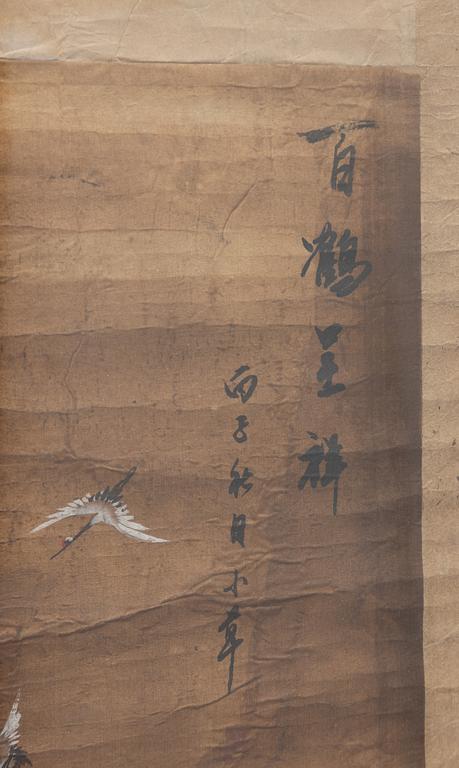 百鶴呈祥
丙子秋月小草